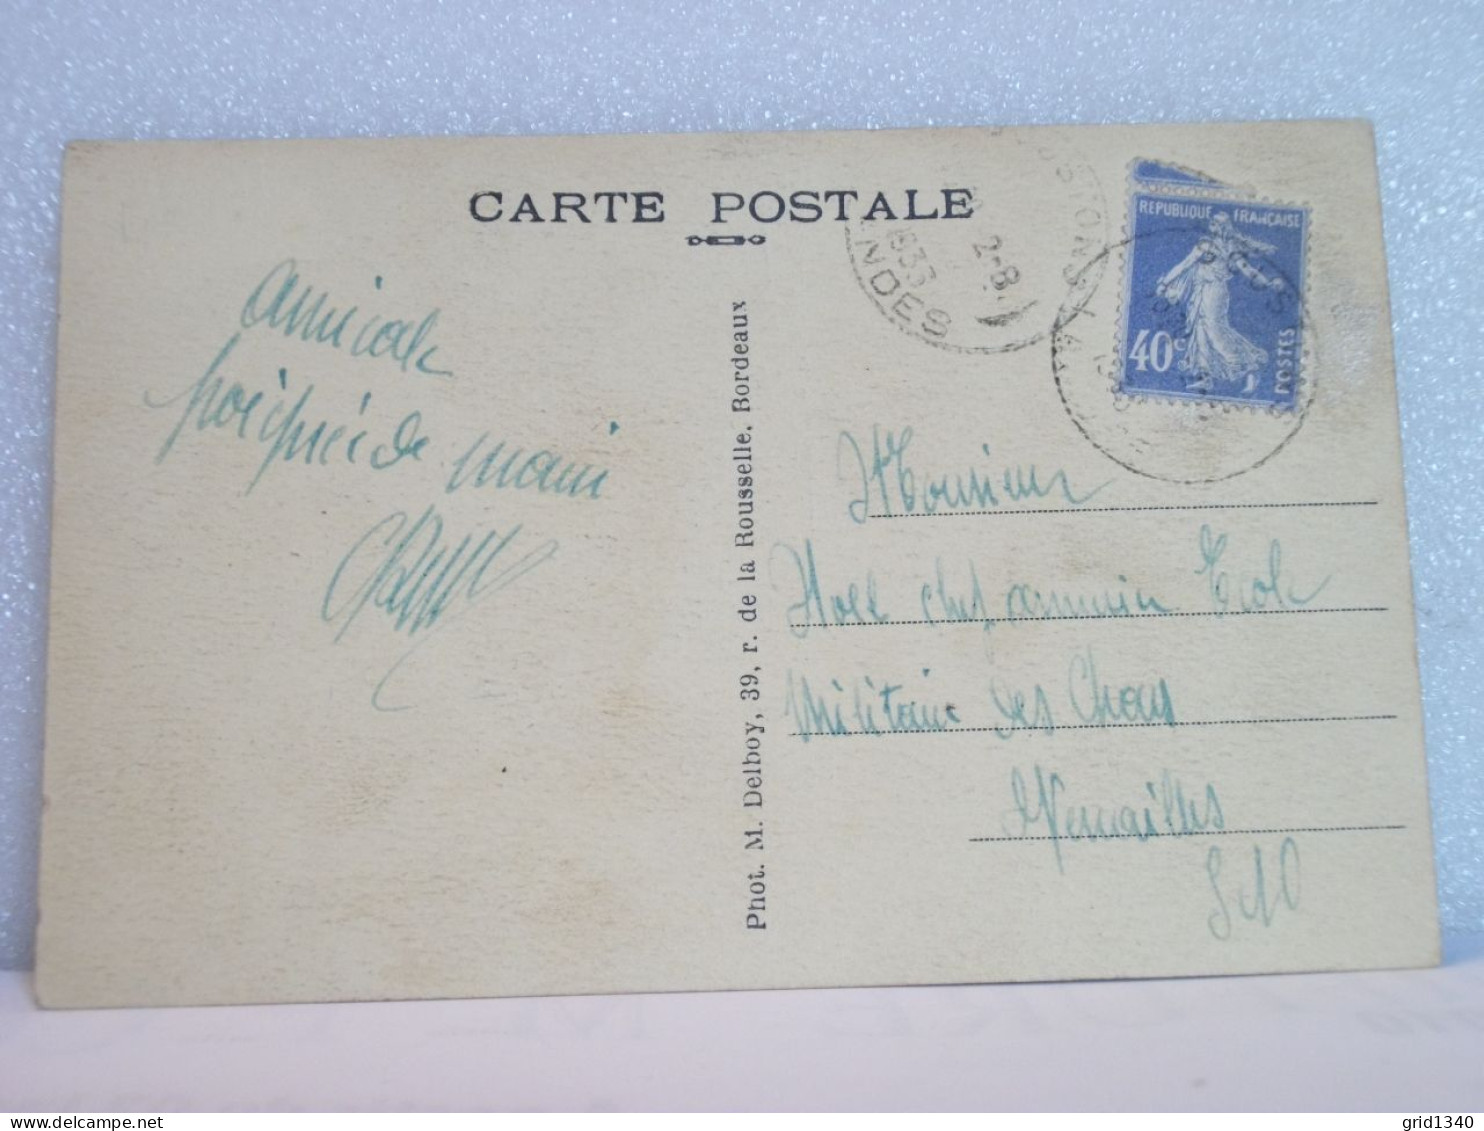 CARTE POSTALE
SOUSTONS
2-8
1933
LANDES
REPUBLIQUE FRANÇAISE
40c
POSTES
Amicale
poignée de main
Phot. M. Delboy, 39, r. de la Rousselle. Bordeaux
Monsieur
chef Ecole
Militaire des
Versailles
S & O
delcampe.net
grid1340